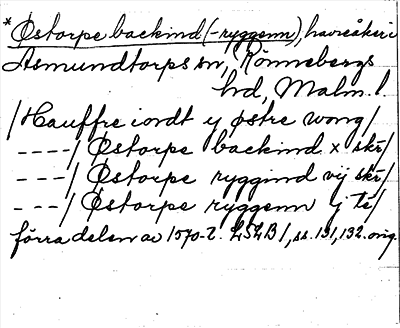 * Østorpe backind (-ryggenn), havreåker i
Asmundtorps sn, Rönnebergs
hd, Malm. l.
/Hauffre iordt y østre wong/
----/ Østorpe backind x skr/
----/ Østorpe ryggind vij skr/
---/ Østorpe ryggenn j te/
förra delen av 1570-t. LSLB 1, ss. 131, 132. orig.